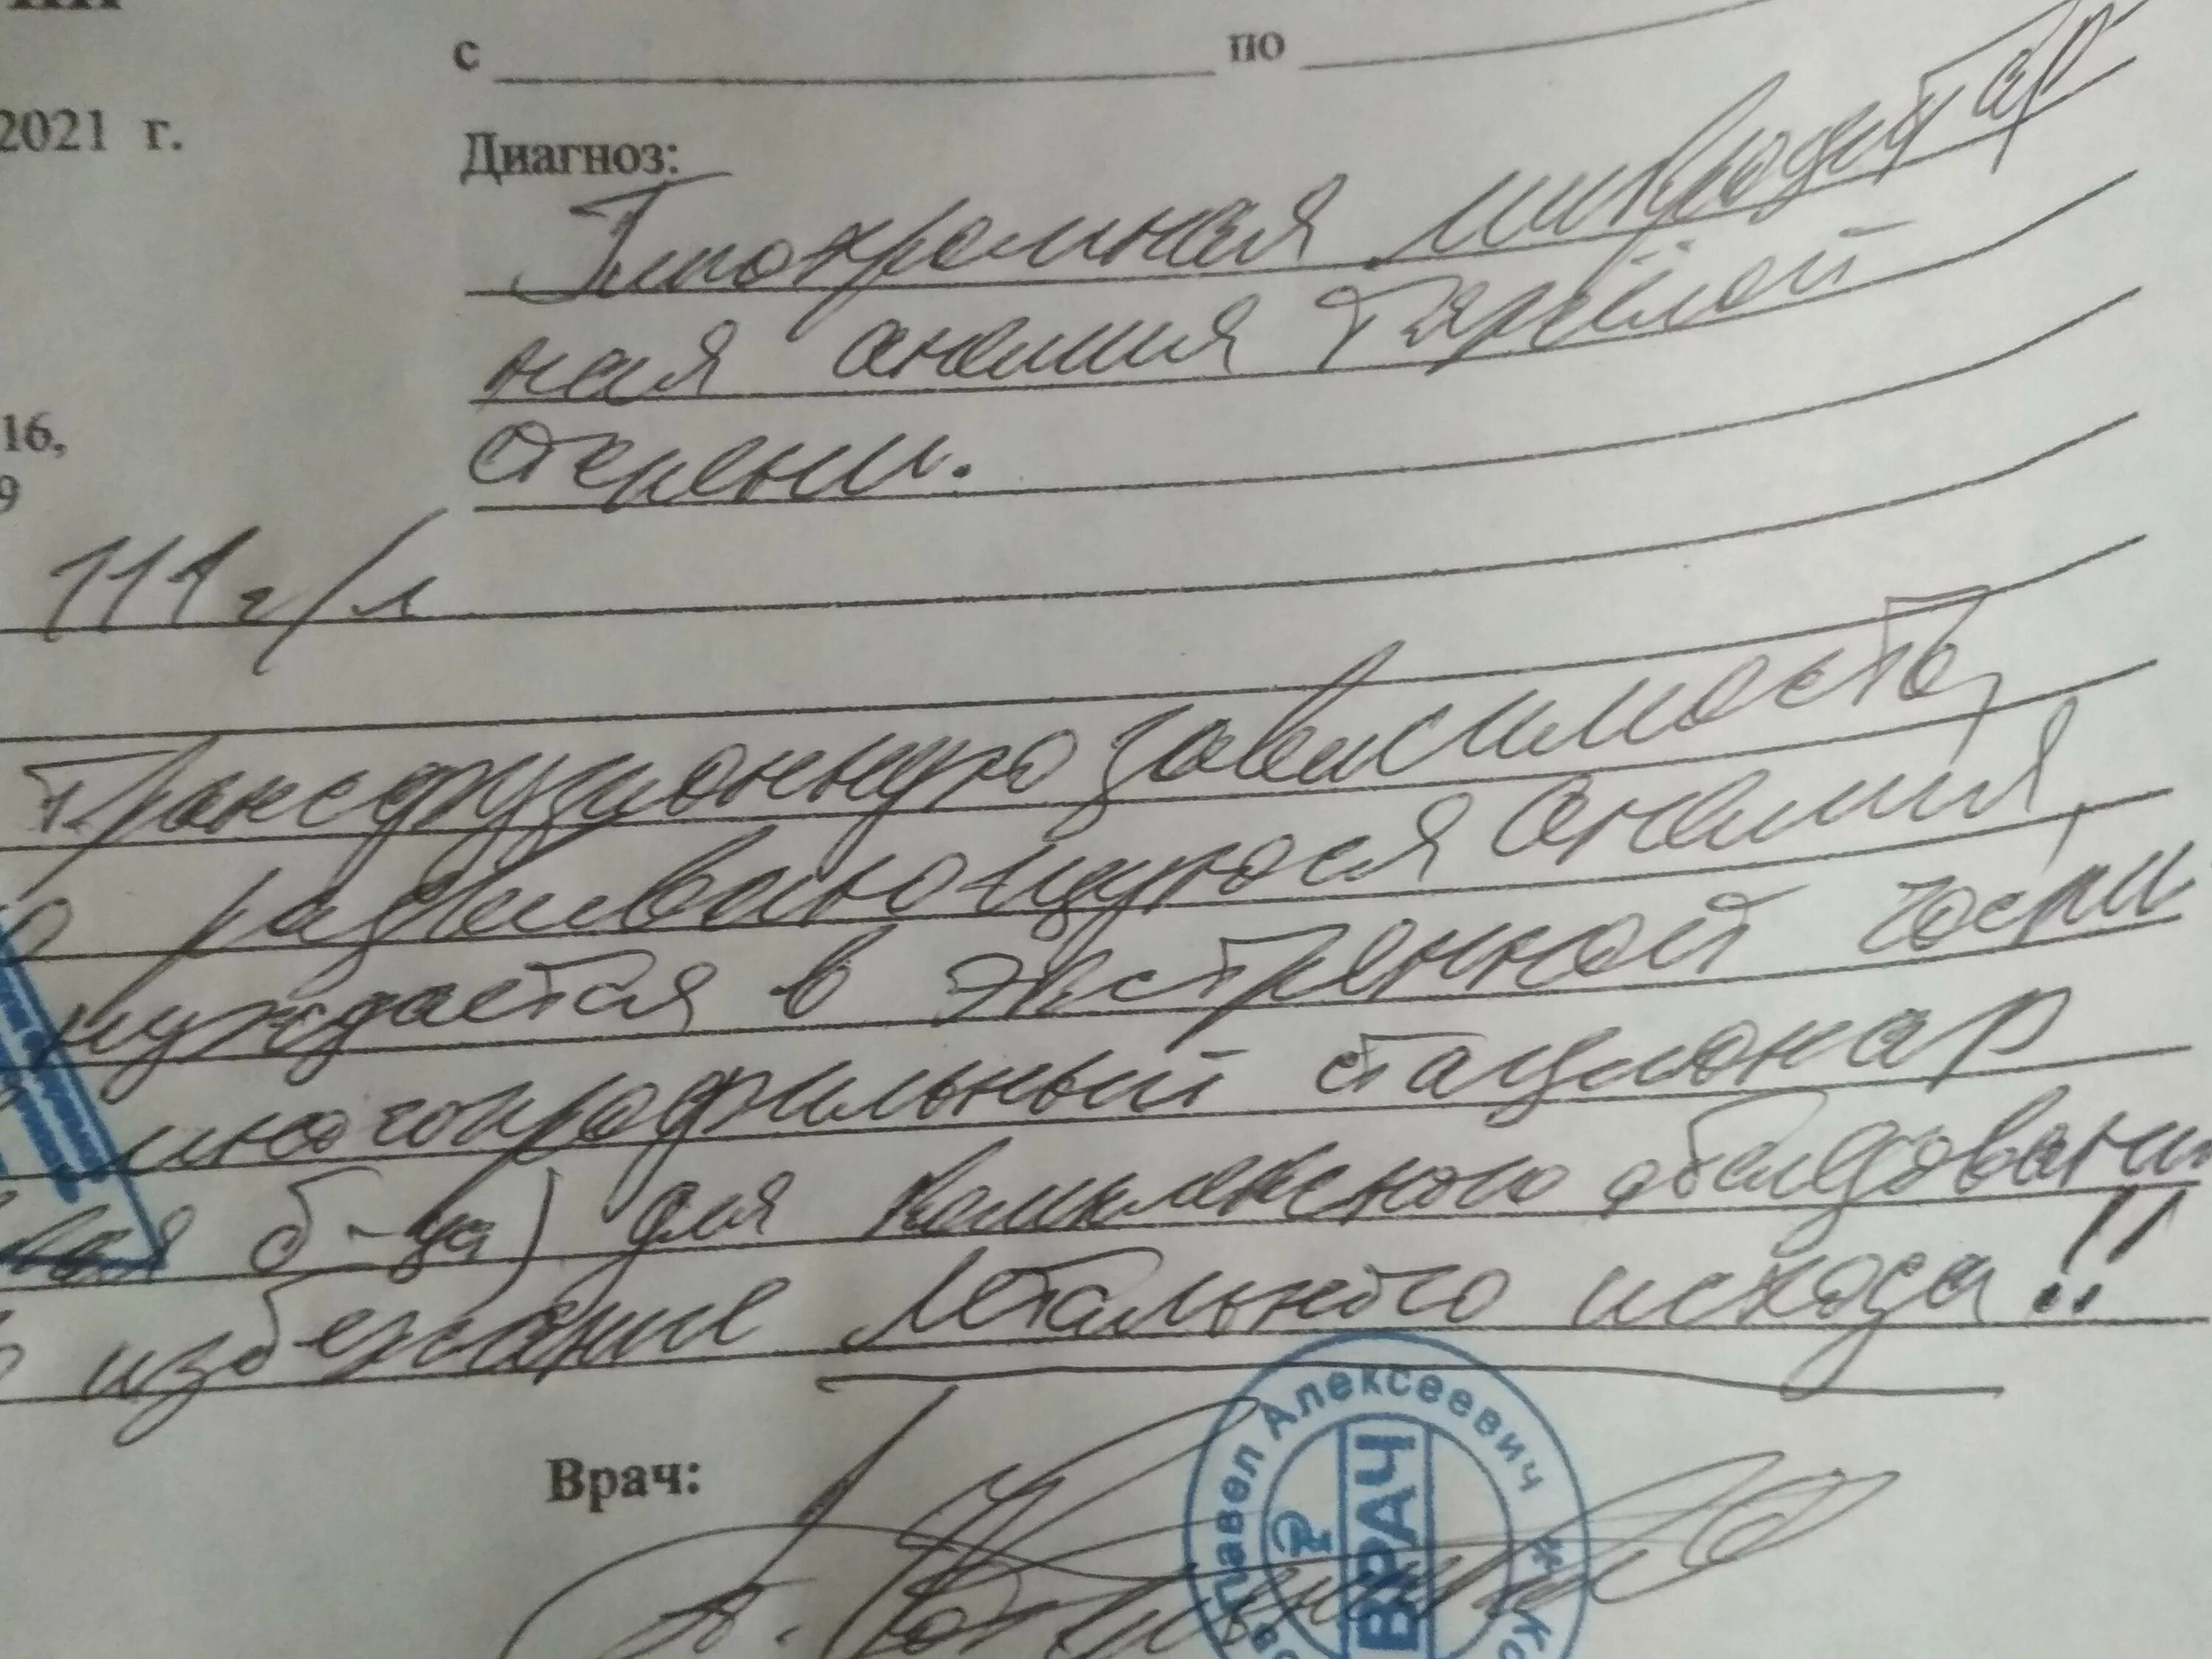 с по
2021 г.
Диагноз:
Гипохромная микроцитар
ная анемия тяжёлой
степени.
16,
9
111 г/л
Трансфузионную зависимость,
о развивающуюся анемия,
нуждается в экстренной госпи
многопрофильный стационар
б-ца) для комплексного обследовани
избежание летального исхода!!
Врач:
Павел Алексеевич
ВРАЧ